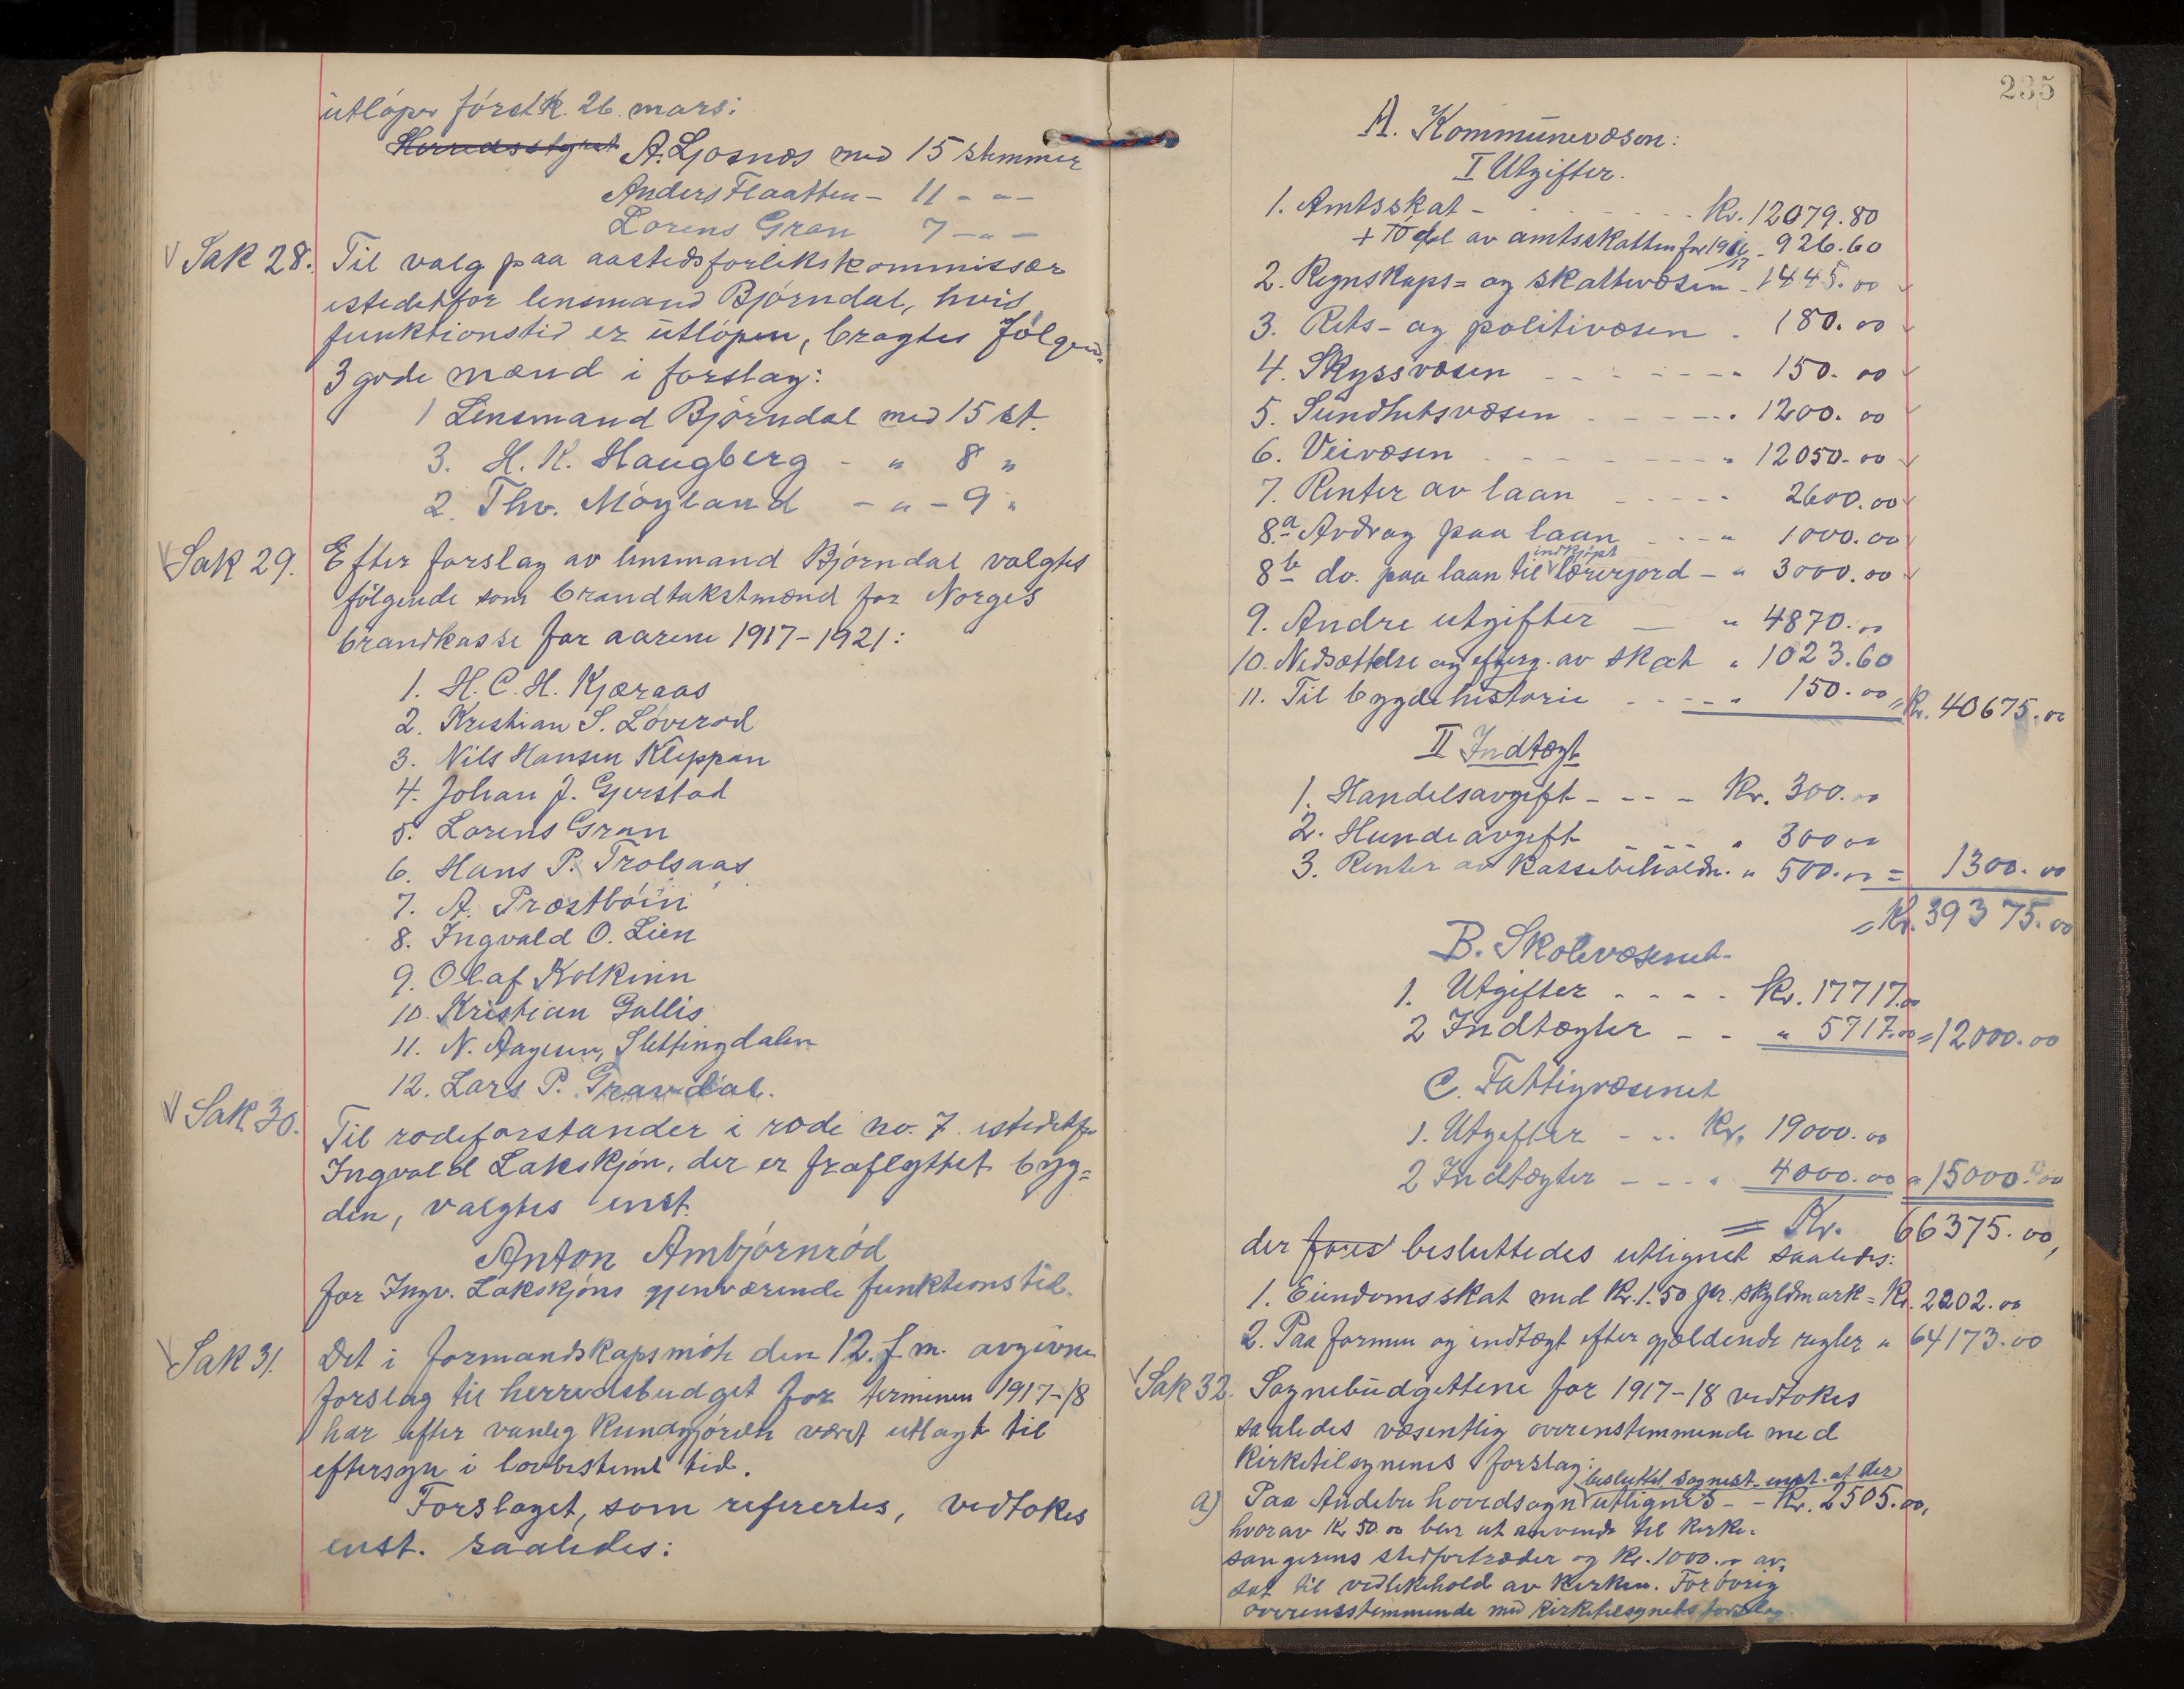 utløper førstk. 26. mars:
Herredsstyret A. Ljosnæs med 15 stemmer
Anders Flaatten - 11 - " -
Lorens Gran 7 - " -
Sak 28. Til valg paa aastedsforlikskommissær
istedetfor lensmand Bjørndal, hvis
funktionstid er utløpen, bragtes følgende
3 gode mænd i forslag:
1 Lensmand Bjørndal med 15 st.
3. H. K. Haugberg - " 8 "
2. Thv. Møyland - " - 9 "
Sak 29. Efter forslag av lensmand Bjørndal valgtes
følgende som brandtakstmænd for Norges
brandkasse for aarene 1917-1921:
1. H. C. H. Kjæraas
2. Kristian S. Løverød
3. Nils Hansen Kleppan
4. Johan J. Gjerstad
5. Lorens Gran
6. Hans P. Trolsaas
7. A. Præstbøin
8. Ingvald O. Lien
9. Olaf Kolkinn
10. Kristian Gallis
11. N. Aagesen, Slettingdalen
12. Lars P. Gravdal.
Sak 30. Til rodeforstander i rode no. 7 istedetfor
Ingvald Lakskjøn, der er fraflyttet byg=
den, valgtes enst.
Anton Ambjørnrød
for Ingv. Lakskjøns gjenværende funktionstid.
Sak 31. Det i formandskapsmøte den 12. f. m. avgivne
forslag til herredsbudget for terminen 1917-18
har efter vanlig kundgjørelse været utlagt til
eftersyn i lovbestemt tid.
Forslaget, som referertes, vedtokes
enst. saaledes:
235
A. Kommunevæsen:
I Utgifter.
1. Amtsskat - - - - - Kr. 12079.80
+ 10 del av amtsskatten for 1916/17 - 926.60
2. Regnskaps= og skattevæsen - 1445.00
3. Rets- og politivæsen - 180.00
4. Skyssvæsen - - - - - " 150.00
5. Sundhetsvæsen - - - - " 1200.00
6. Veivæsen - - - - - " 12050.00
7. Renter av laan - - - - 2600.00
8.a Avdrag paa laan - - - " 1000.00
8b do. paa laan til indkjøpt lærerjord - " 3000.00
9. Andre utgifter — " 4870.00
10. Nedsættelse og efterg. av skat " 1023.60
11. Til bygdehistorie - - - " 150.00 = Kr. 40675.00
II Indtægt
1. Handelsavgift - - - - Kr. 300.00
2. Hundeavgift - - - " 300.00
3. Renter av kassebeholdn. " 500.00 = 1300.00
= Kr. 39375.00
B. Skolevæsenet
1. Utgifter - - - - Kr. 17717.00
2 Indtægter - - " 5717.00 = 12000.00
C. Fattigvæsenet
1. Utgifter - - - Kr. 19000.00
2 Indtægter - - - " 4000.00 " 15000.00
= Kr. 66375.00,
der fores besluttedes utlignet saaledes:
1. Eiendomsskat med Kr. 1.50 pr. skyldmark = Kr. 2202.00
2. Paa formue og indtægt efter gjældende regler " 64173.00
Sak 32. Sognebudgettene for 1917-18 vedtokes
saaledes væsentlig overenstemmende med
kirketilsynenes forslag:
a) Paa Andebu hovedsogn besluttet sognest. enst. at der utlignes - - Kr. 2505.00,
hvorav Kr 50.00 blir at anvende til kirke-
sangerens stedfortræder og Kr. 1000.00 av=
sat til vedlikehold av kirken. Forøvrig
overensstemmende med kirketilsynets forslag.